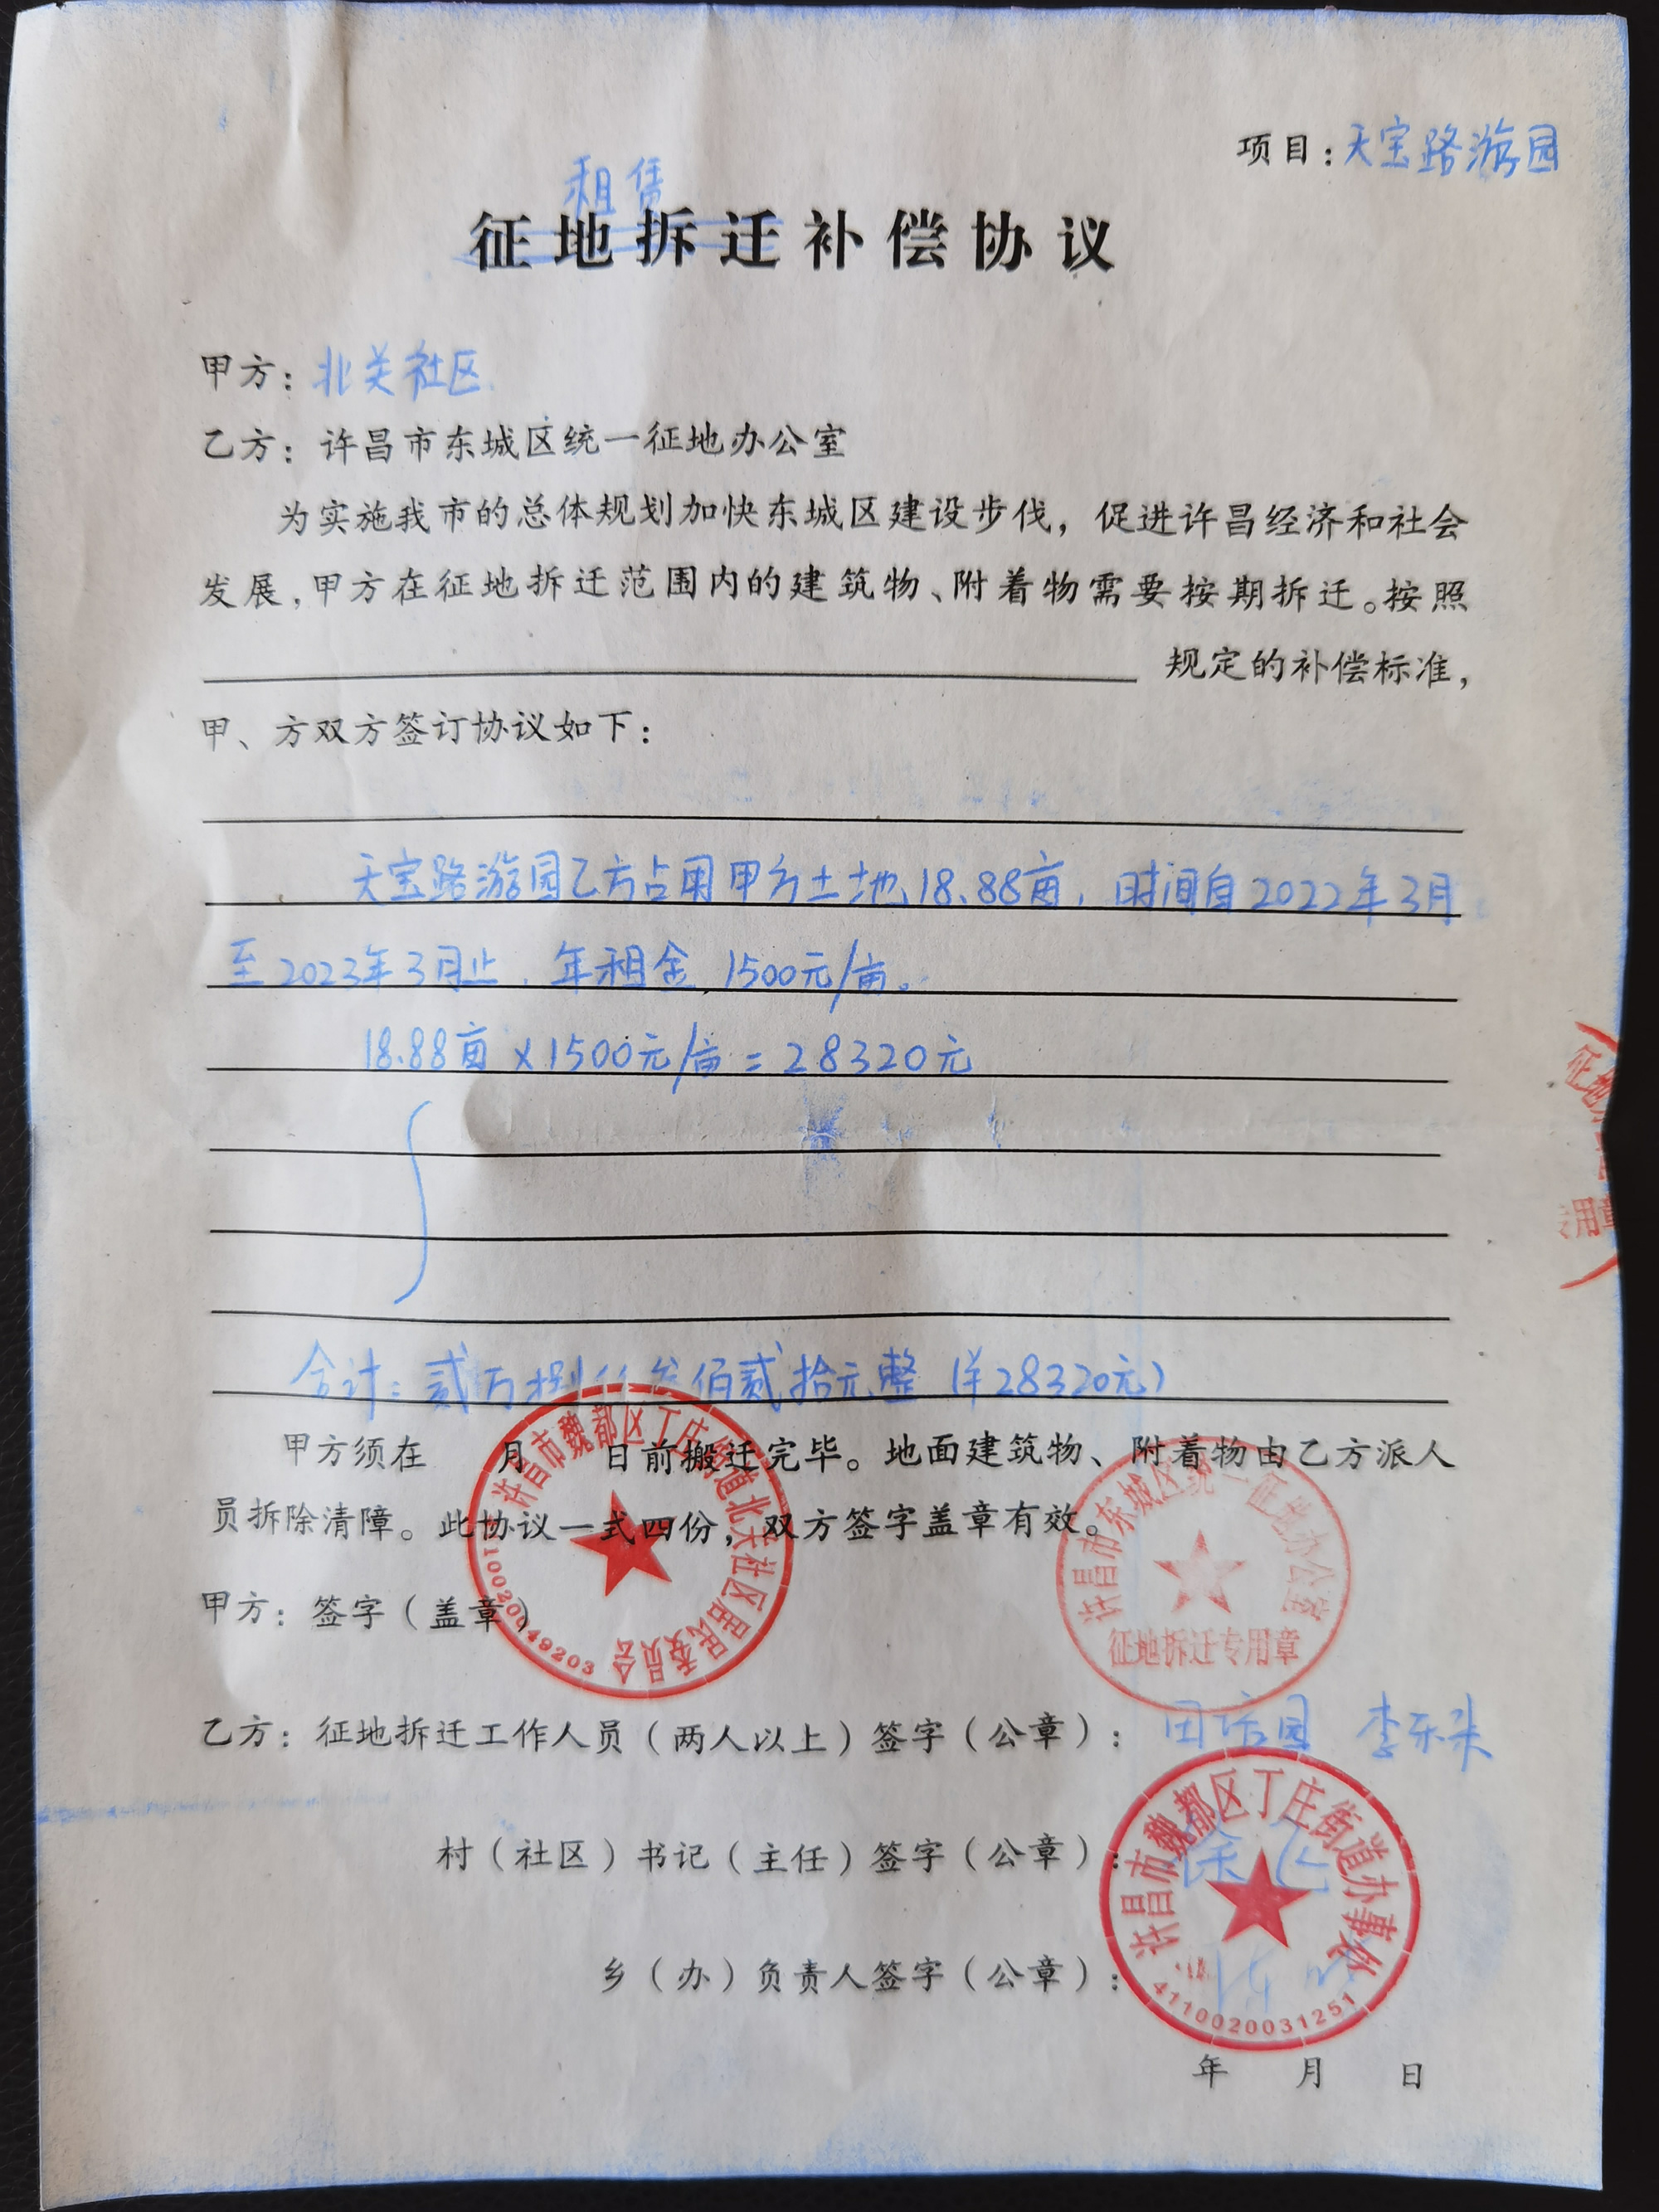 项目：天宝路游园
租赁
征地拆迁补偿协议
甲方：北关社区
乙方：许昌市东城区统一征地办公室
为实施我市的总体规划加快东城区建设步伐，促进许昌经济和社会
发展，甲方在征地拆迁范围内的建筑物、附着物需要按期拆迁。按照
规定的补偿标准，
甲、方双方签订协议如下：
天宝路游园乙方占用甲方土地18.88亩，时间自2022年3月
至2023年3月止，年租金1500元/亩。
18.88亩×1500元/亩=28320元
征地
用章
合计：贰万捌仟叁佰贰拾元整（¥28320元）
甲方须在 月 日前搬迁完毕。地面建筑物、附着物由乙方派人
员拆除清障。此协议一式四份，双方签字盖章有效。
甲方：签字（盖章）
许昌市魏都区丁庄街道北关社区居民委员会
许昌市东城区统一征地办公室
征地拆迁专用章
乙方：征地拆迁工作人员（两人以上）签字（公章）：
村（社区）书记（主任）签字（公章）：
乡（办）负责人签字（公章）：
许昌市魏都区丁庄街道办事处
4110020031251
年 月 日